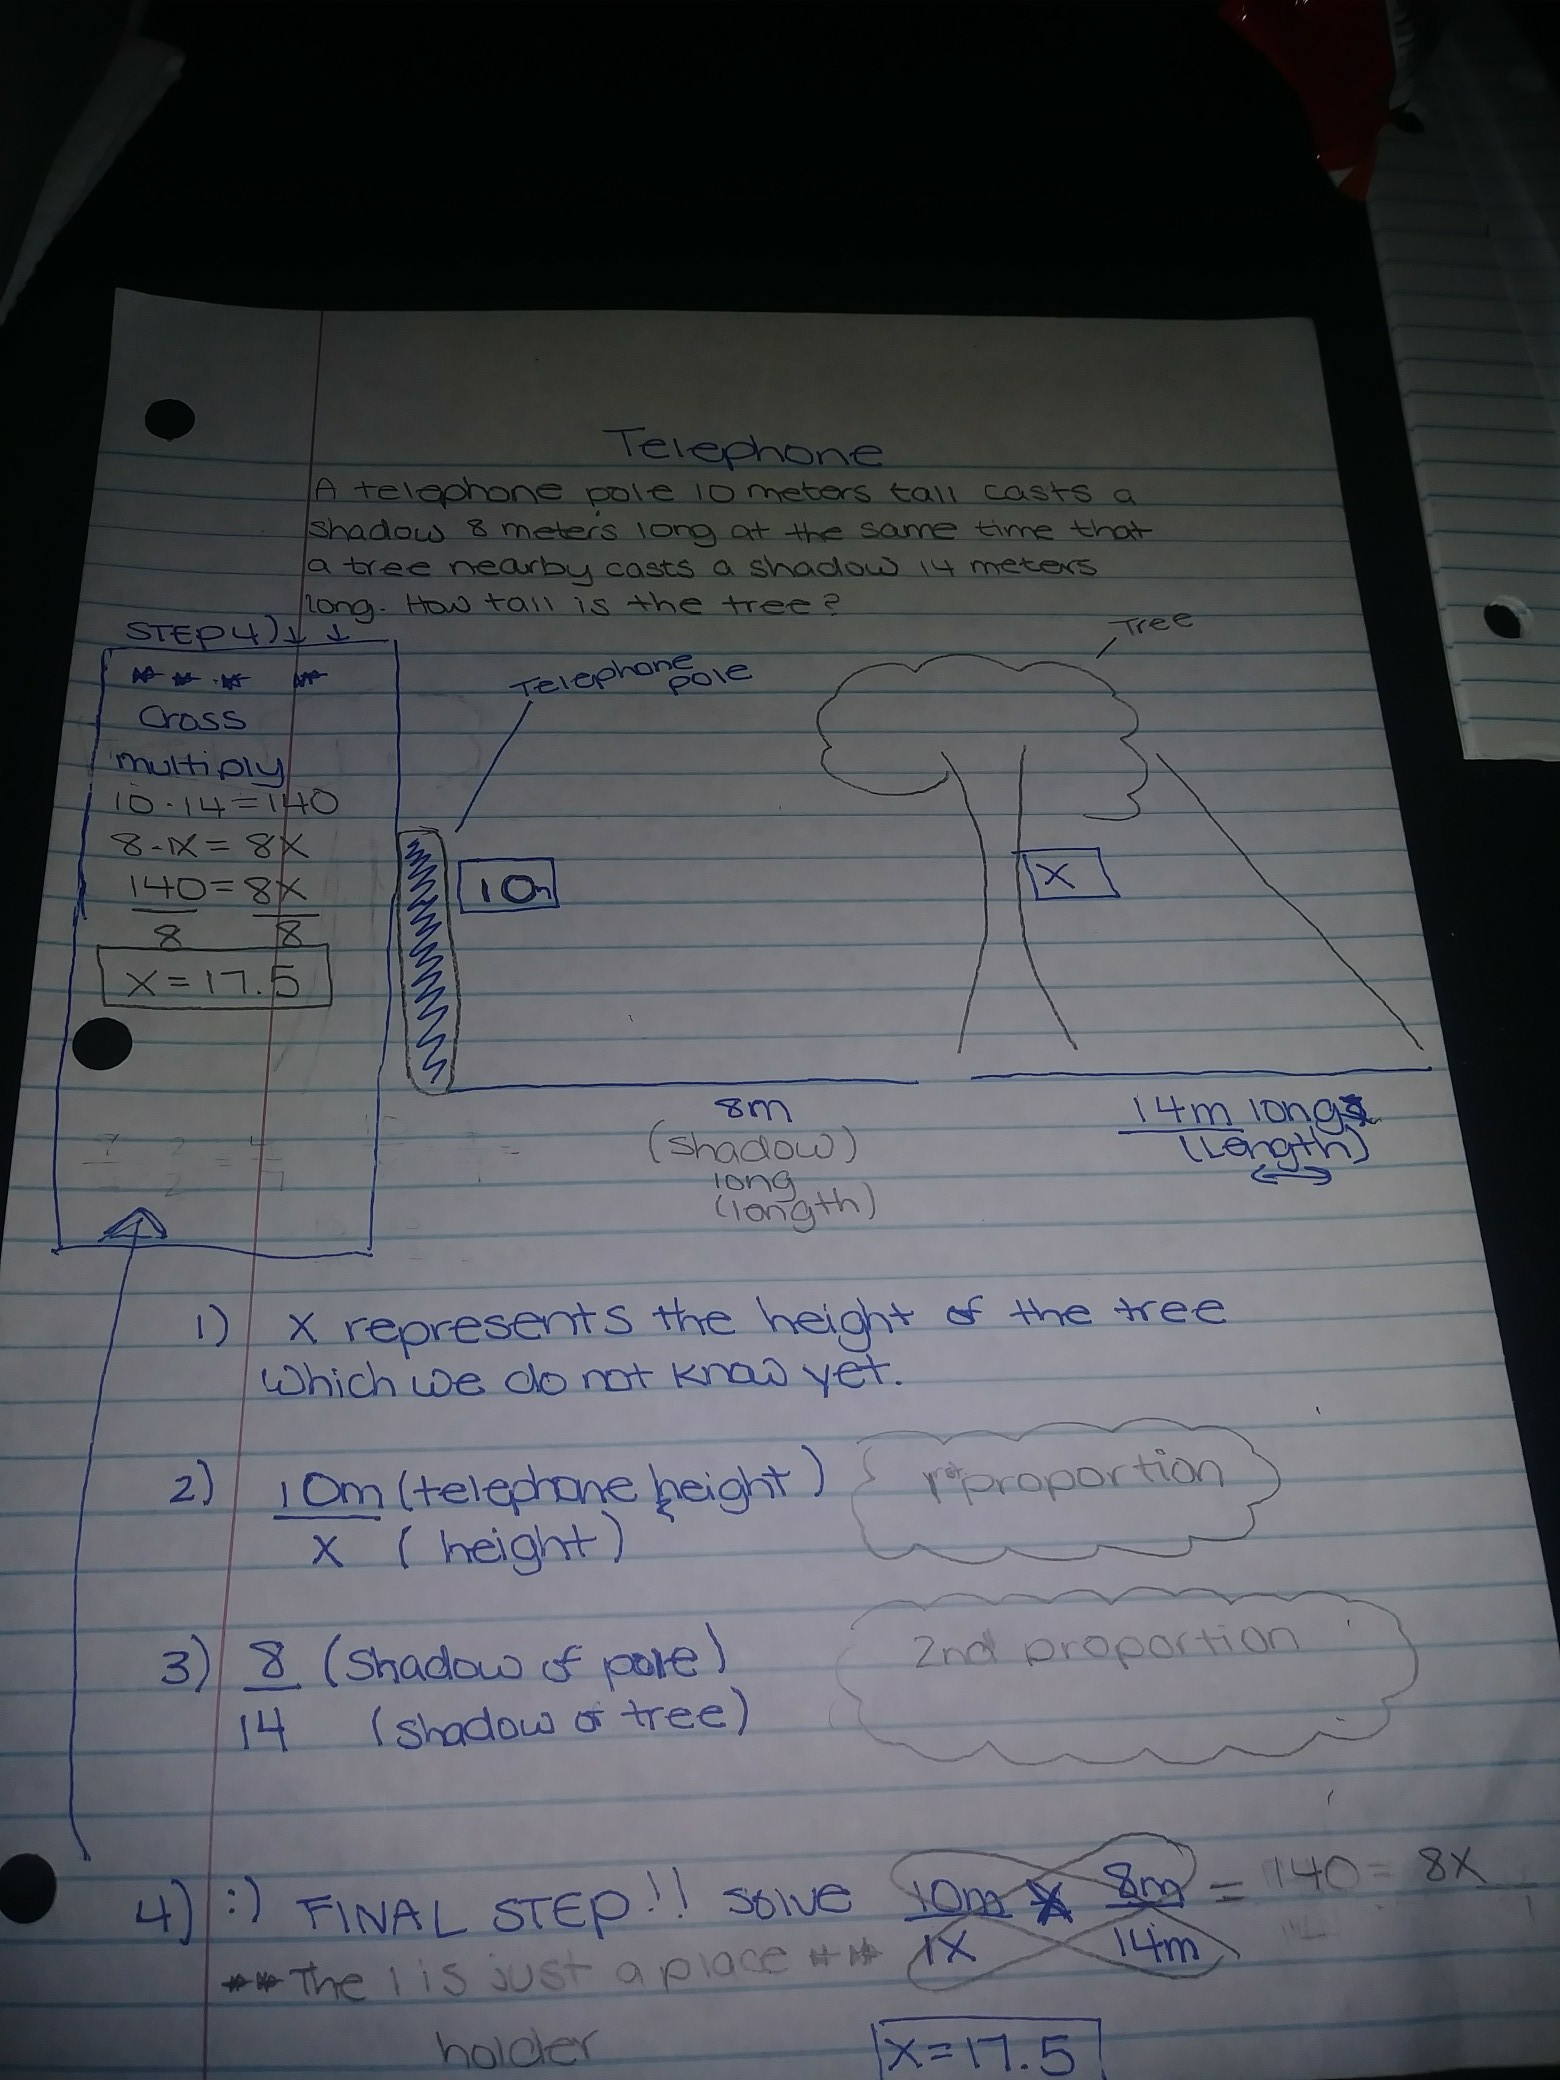 Telephone
A telephone pole 10 meters tall casts a
shadow 8 meters long at the same time that
a tree nearby casts a shadow 14 meters
long. How tall is the tree?
STEP 4) ↓ ↓
** ** ** **
Cross
multiply
10 · 14 = 140
8 · 1X = 8X
140 = 8X
8 8
X = 17.5
Telephone
pole
Tree
10m
X
8m
(shadow)
long
(length)
14m long
(Length)
1) X represents the height of the tree
which we do not know yet.
2) 10m (telephone height)
X (height)
1st proportion
3) 8 (shadow of pole)
14 (shadow of tree)
2nd proportion
4) :) FINAL STEP!! solve 10m X 8m = 140 = 8X
1X 14m
** The 1 is just a place **
holder
X = 17.5